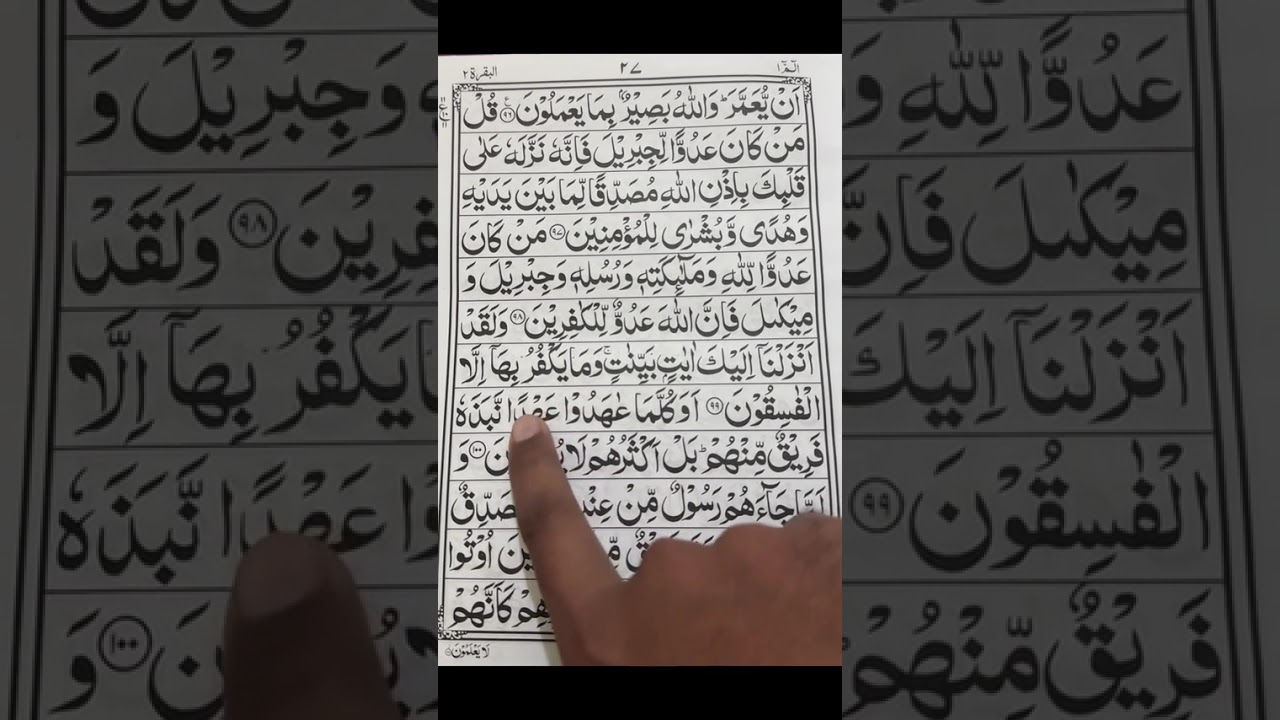 الٓمّٓ ١ ٢٧ البقرة ٢
اَنْ يُّعَمَّرَ ؕ وَاللّٰهُ بَصِيْرٌۢ بِمَا يَعْمَلُوْنَ ۟﴿٩٦﴾ قُلْ
مَنْ كَانَ عَدُوًّا لِّجِبْرِيْلَ فَاِنَّهٗ نَزَّلَهٗ عَلٰى
قَلْبِكَ بِاِذْنِ اللّٰهِ مُصَدِّقًا لِّمَا بَيْنَ يَدَيْهِ
وَهُدًى وَّبُشْرٰى لِلْمُؤْمِنِيْنَ ﴿٩٧﴾ مَنْ كَانَ
عَدُوًّا لِّلّٰهِ وَمَلٰٓئِكَتِهٖ وَرُسُلِهٖ وَجِبْرِيْلَ وَ
مِيْكٰىلَ فَاِنَّ اللّٰهَ عَدُوٌّ لِّلْكٰفِرِيْنَ ﴿٩٨﴾ وَلَقَدْ
اَنْزَلْنَاۤ اِلَيْكَ اٰيٰتٍۭ بَيِّنٰتٍ ۚ وَمَا يَكْفُرُ بِهَاۤ اِلَّا
الْفٰسِقُوْنَ ﴿٩٩﴾ اَوَكُلَّمَا عٰهَدُوْا عَهْدًا نَّبَذَهٗ
فَرِيْقٌ مِّنْهُمْ ؕ بَلْ اَكْثَرُهُمْ لَا ﴿١٠٠﴾ وَ
لَمَّا جَآءَهُمْ رَسُوْلٌ مِّنْ
اُوْتُوا
كَاَنَّهُمْ
لَا يَعْلَمُوْنَ